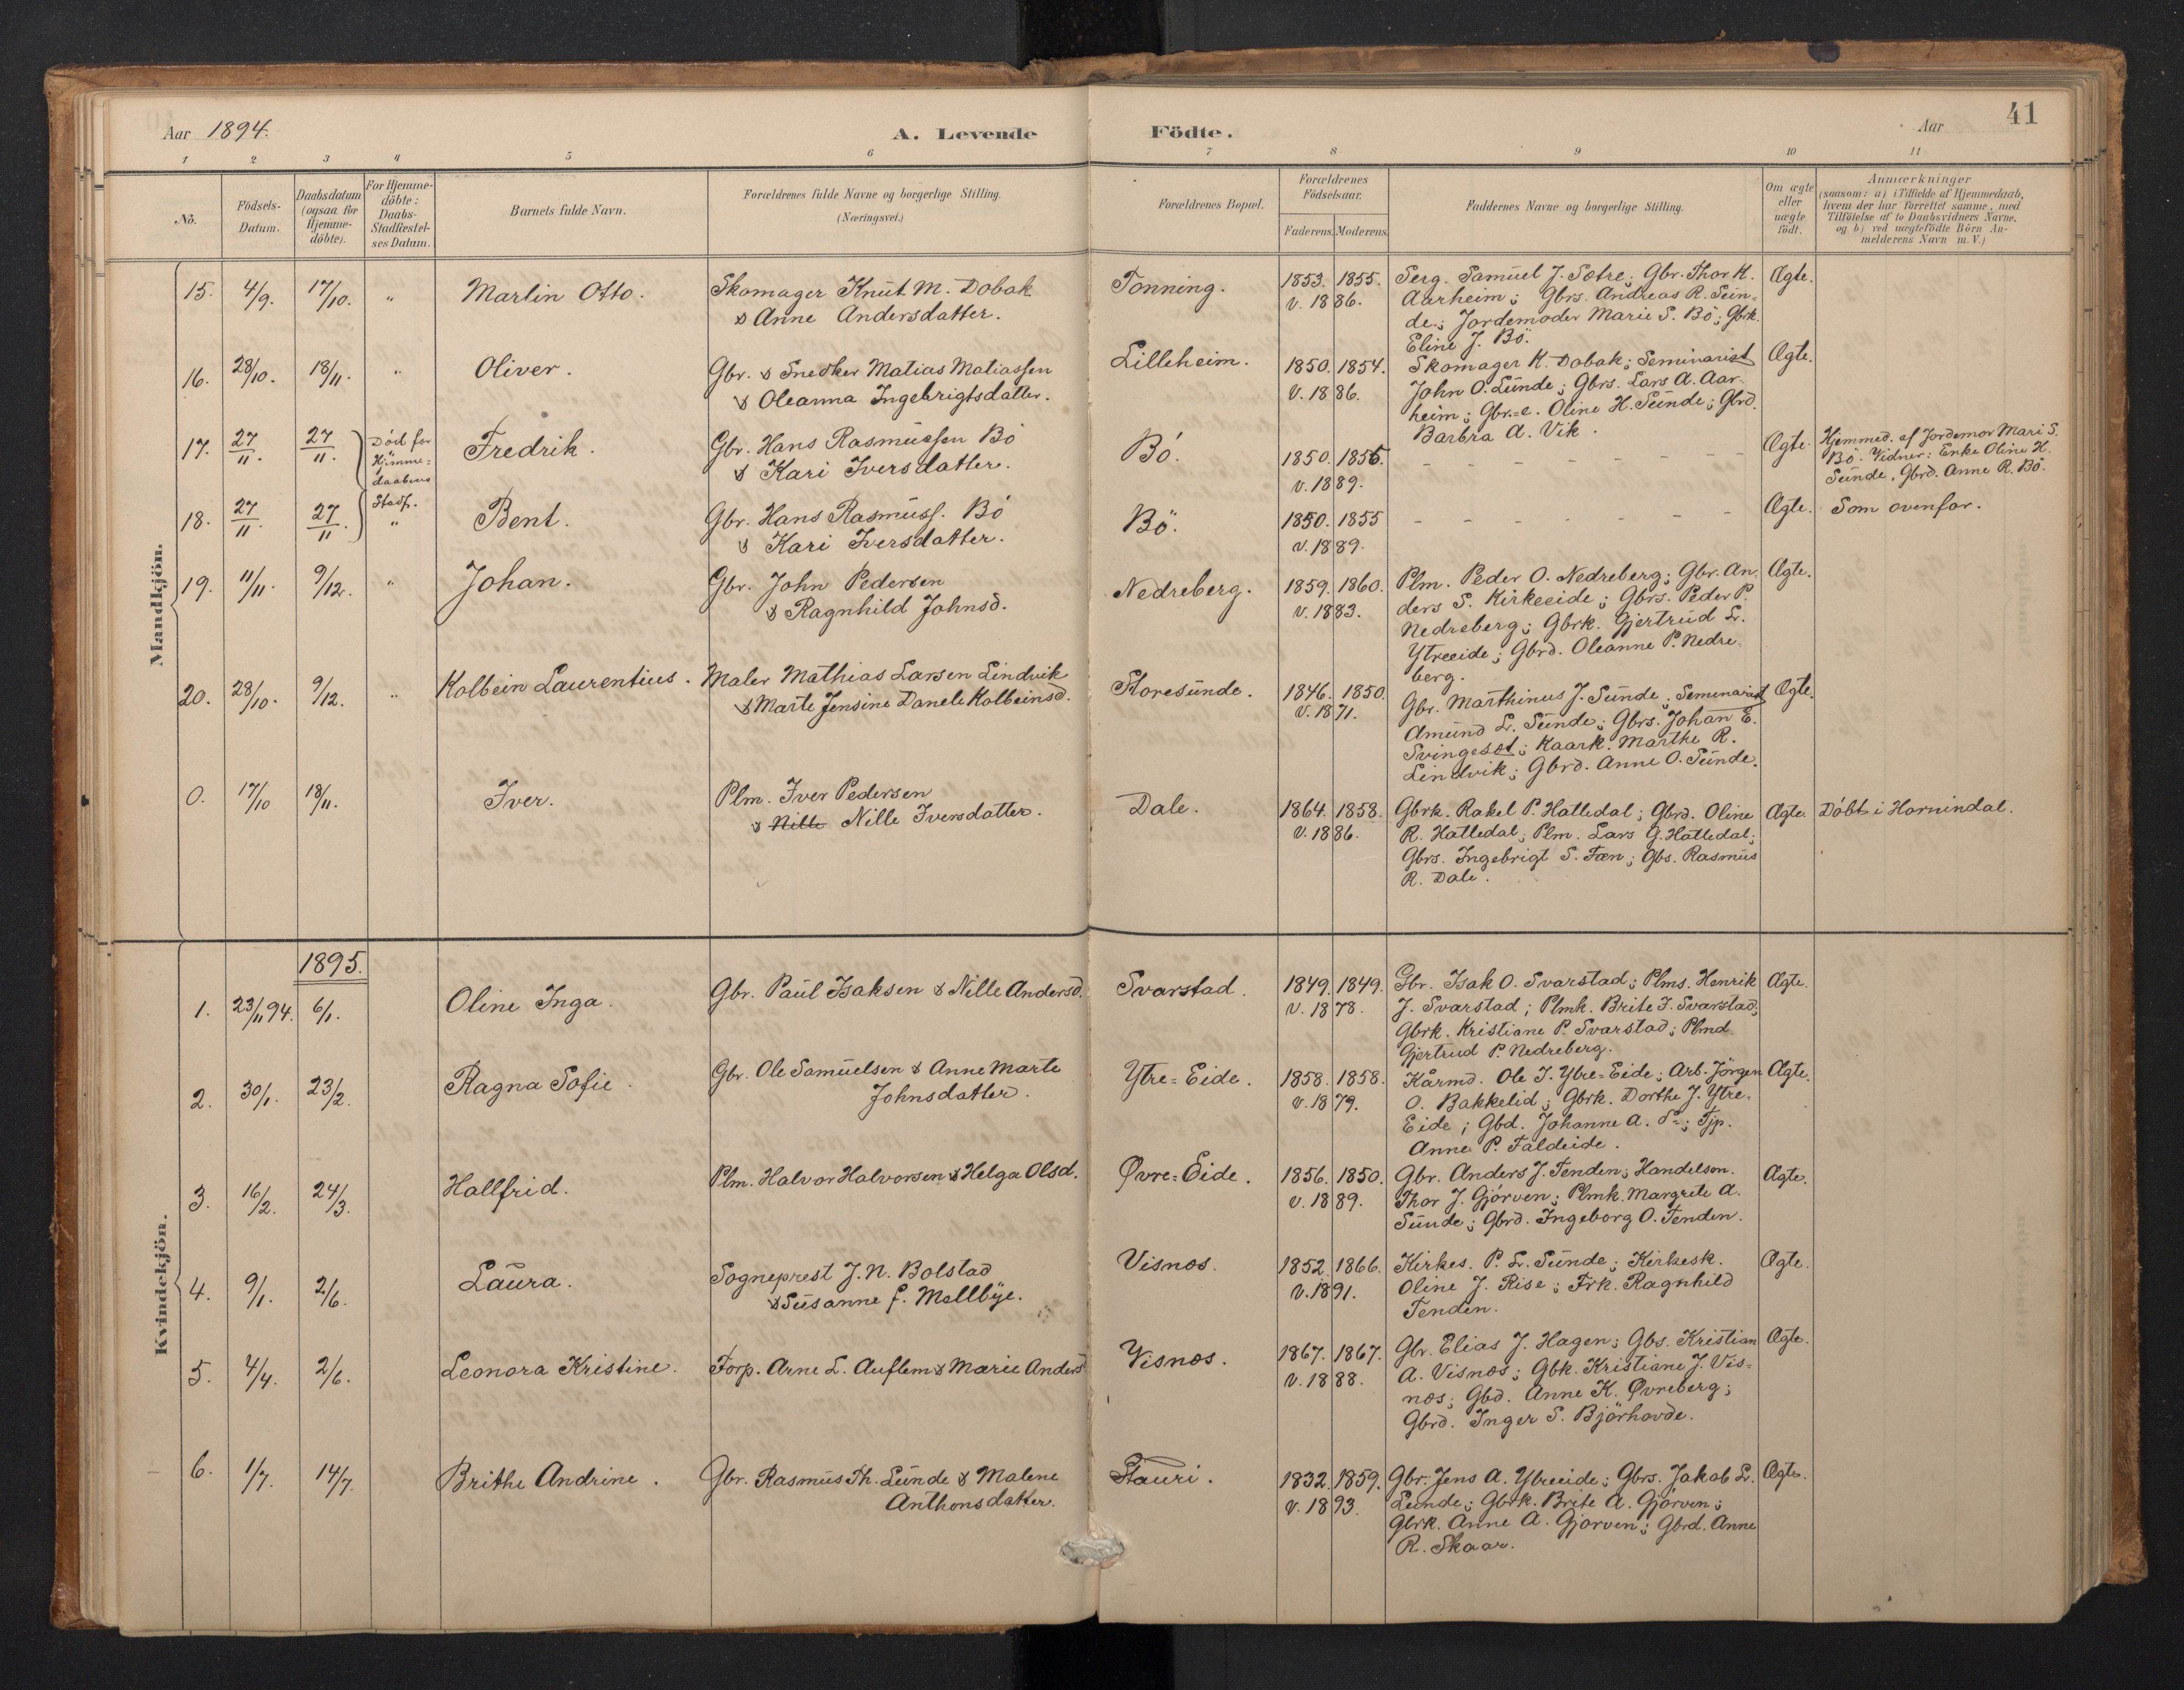 Aar 1894.
A. Levende Födte.
Aar
41
1 2 3 4 5 6 7 8 9 10 11
No.
Födsels-Datum.
Daabsdatum (ogsaa for Hjemme-döbte).
For Hjemme-döbte: Daabs-Stadfæstel-ses Datum.
Barnets fulde Navn.
Forældrenes fulde Navne og borgerlige Stilling. (Næringsvei.)
Forældrenes Bopæl.
Forældrenes Födselsaar.
Faderens. Moderens.
Faddernes Navne og borgerlige Stilling.
Om ægte eller uægte födt.
Anmærkninger
(saasom: a) i Tilfælde af Hjemmedaab,
hvem der har forrettet samme, med
Tilföielse af to Daabsvidners Navne,
og b) ved uægtefödte Börn An-
melderens Navn m.V.)
Mandkjön.
15. 4/9. 17/10. " Martin Otto. Skomager Knut M. Dobak
& Anne Andersdatter.
Tonning. 1853. 1855.
v. 1886.
Serg. Samuel J. Sætre; Gbr. Thor K.
Aarheim; Gbrs. Andreas R. Sun-
de; Jordemoder Marie S. Bö; Gbrk.
Eline J. Bö.
Ægte.
16. 28/10. 18/11. " Oliver. Gbr. & Snedker Matias Matiassen
& Oleanna Ingebrigtsdatter.
Lilleheim. 1850. 1854.
v. 1886.
Skomager K. Dobak; Seminarist
John O. Sunde; Gbrs. Lars A. Aar-
heim; Gbr.=e. Oline H. Sunde; Gbrd.
Barbra A. Vik.
Ægte.
17. 27/11. 27/11. Död før
Hjemme-
daabens
Stadf.
Fredrik. Gbr. Hans Rasmussen Bö
& Kari Iversdatter.
Bö. 1850. 1855.
v. 1889.
- - - - - - - -
Ægte.
Hjemmed. af Jordemor Mari S.
Bö. Vidner: Enke Oline H.
Sunde, Gbrd. Anne R. Bö.
18. 27/11. 27/11. " Bent. Gbr. Hans Rasmuss. Bö
& Kari Iversdatter.
Bö. 1850. 1855
v. 1889.
- - - - - - -
Ægte. Som ovenfor.
19. 11/11. 9/12. " Johan. Gbr. John Pedersen
& Ragnhild Johnsd.
Nedreberg. 1859. 1860.
v. 1883.
Plm. Peder O. Nedreberg; Gbr. An-
ders S. Kirkeeide; Gbrs. Peder P.
Nedreberg; Gbrk. Gjertrud L.
Ytreeide; Gbrd. Oleanne P. Nedre-
berg.
Ægte.
20. 28/10. 9/12. " Kolbein Laurentius. Maler Mathias Larsen Lindvik
& Marte Jensine Danele Kolbeinsd.
Storesunde. 1846. 1850.
v. 1871.
Gbr. Marthinus J. Sunde; Seminarist
Amund L. Sunde; Gbrs. Johan E.
Svingesæt; Kaark. Marthe R.
Lindvik; Gbrd. Anne O. Sunde.
Ægte.
0. 17/10 18/11. Iver. Plm. Iver Pedersen
& Nille Nille Iversdatter.
Dale. 1864. 1858.
v. 1886.
Gbrk. Rakel P. Hatledal; Gbrd. Oline
R. Hatledal; Plm. Lars G. Hatledal;
Gbrs. Ingebrigt S. Fæn; Gbs. Rasmus
R. Dale.
Ægte. Döbt i Hornindal.
Kvindekjön.
1895.
1. 23/11 94. 6/1. Oline Inga. Gbr. Paul Isaksen & Nille Andersd.
Svarstad. 1849. 1849.
v. 1878.
Gbr. Isak O. Svarstad; Plms. Henrik
J. Svarstad; Plmk. Brite I. Svarstad;
Gbrk. Kristiane P. Svarstad; Plmd.
Gjertrud P. Nedreberg.
Ægte.
2. 30/1. 23/2. Ragna Sofie. Gbr. Ole Samuelsen & Anne Marte
Johnsdatter.
Ytre=Eide. 1858. 1858.
v. 1879.
Kårmd. Ole I. Ytre=Eide; Arb. Jörgen
O. Bakkelid; Gbrk. Dorthe J. Ytre-
Eide; Gbd. Johanne A. do; Tjp.
Anne P. Faldeide.
Ægte.
3. 16/2. 24/3. Hallfrid. Plm. Halvor Halvorsen & Helga Olsd.
Øvre=Eide. 1856. 1850.
v. 1889.
Gbr. Anders J. Tenden; Handelsm.
Thor J. Gjörven; Plmk. Margrete A.
Sunde; Gbrd. Ingeborg O. Tenden.
Ægte.
4. 9/1. 2/6. Laura. Sogneprest J. N. Bolstad
& Susanne f. Mellbye.
Visnæs. 1852. 1866.
v. 1891.
Kirkes. P. L. Sunde; Kirkesk.
Oline J. Rise; Frk. Ragnhild
Tenden.
Ægte.
5. 4/4. 2/6. Leonora Kristine. Forp. Arne L. Auflem & Marie Anders
Visnæs. 1867. 1867.
v. 1888.
Gbr. Elias J. Hagen; Gbs. Kristian
A. Visnæs; Gbk. Kristiane J. Vis-
næs; Gbd. Anne K. Øvreberg;
Gbrd. Inger S. Bjørhovde.
Ægte.
6. 1/7. 14/7. Brithe Andrine. Gbr. Rasmus Th. Lunde & Malene
Anthonsdatter.
Stauri. 1832. 1859.
v. 1893.
Gbr. Jens A. Ytreeide; Gbrs. Jakob L.
Lunde; Gbrk. Brite A. Gjörven;
Gbrk. Anne A. Gjörven; Gbrd. Anne
R. Skaar.
Ægte.